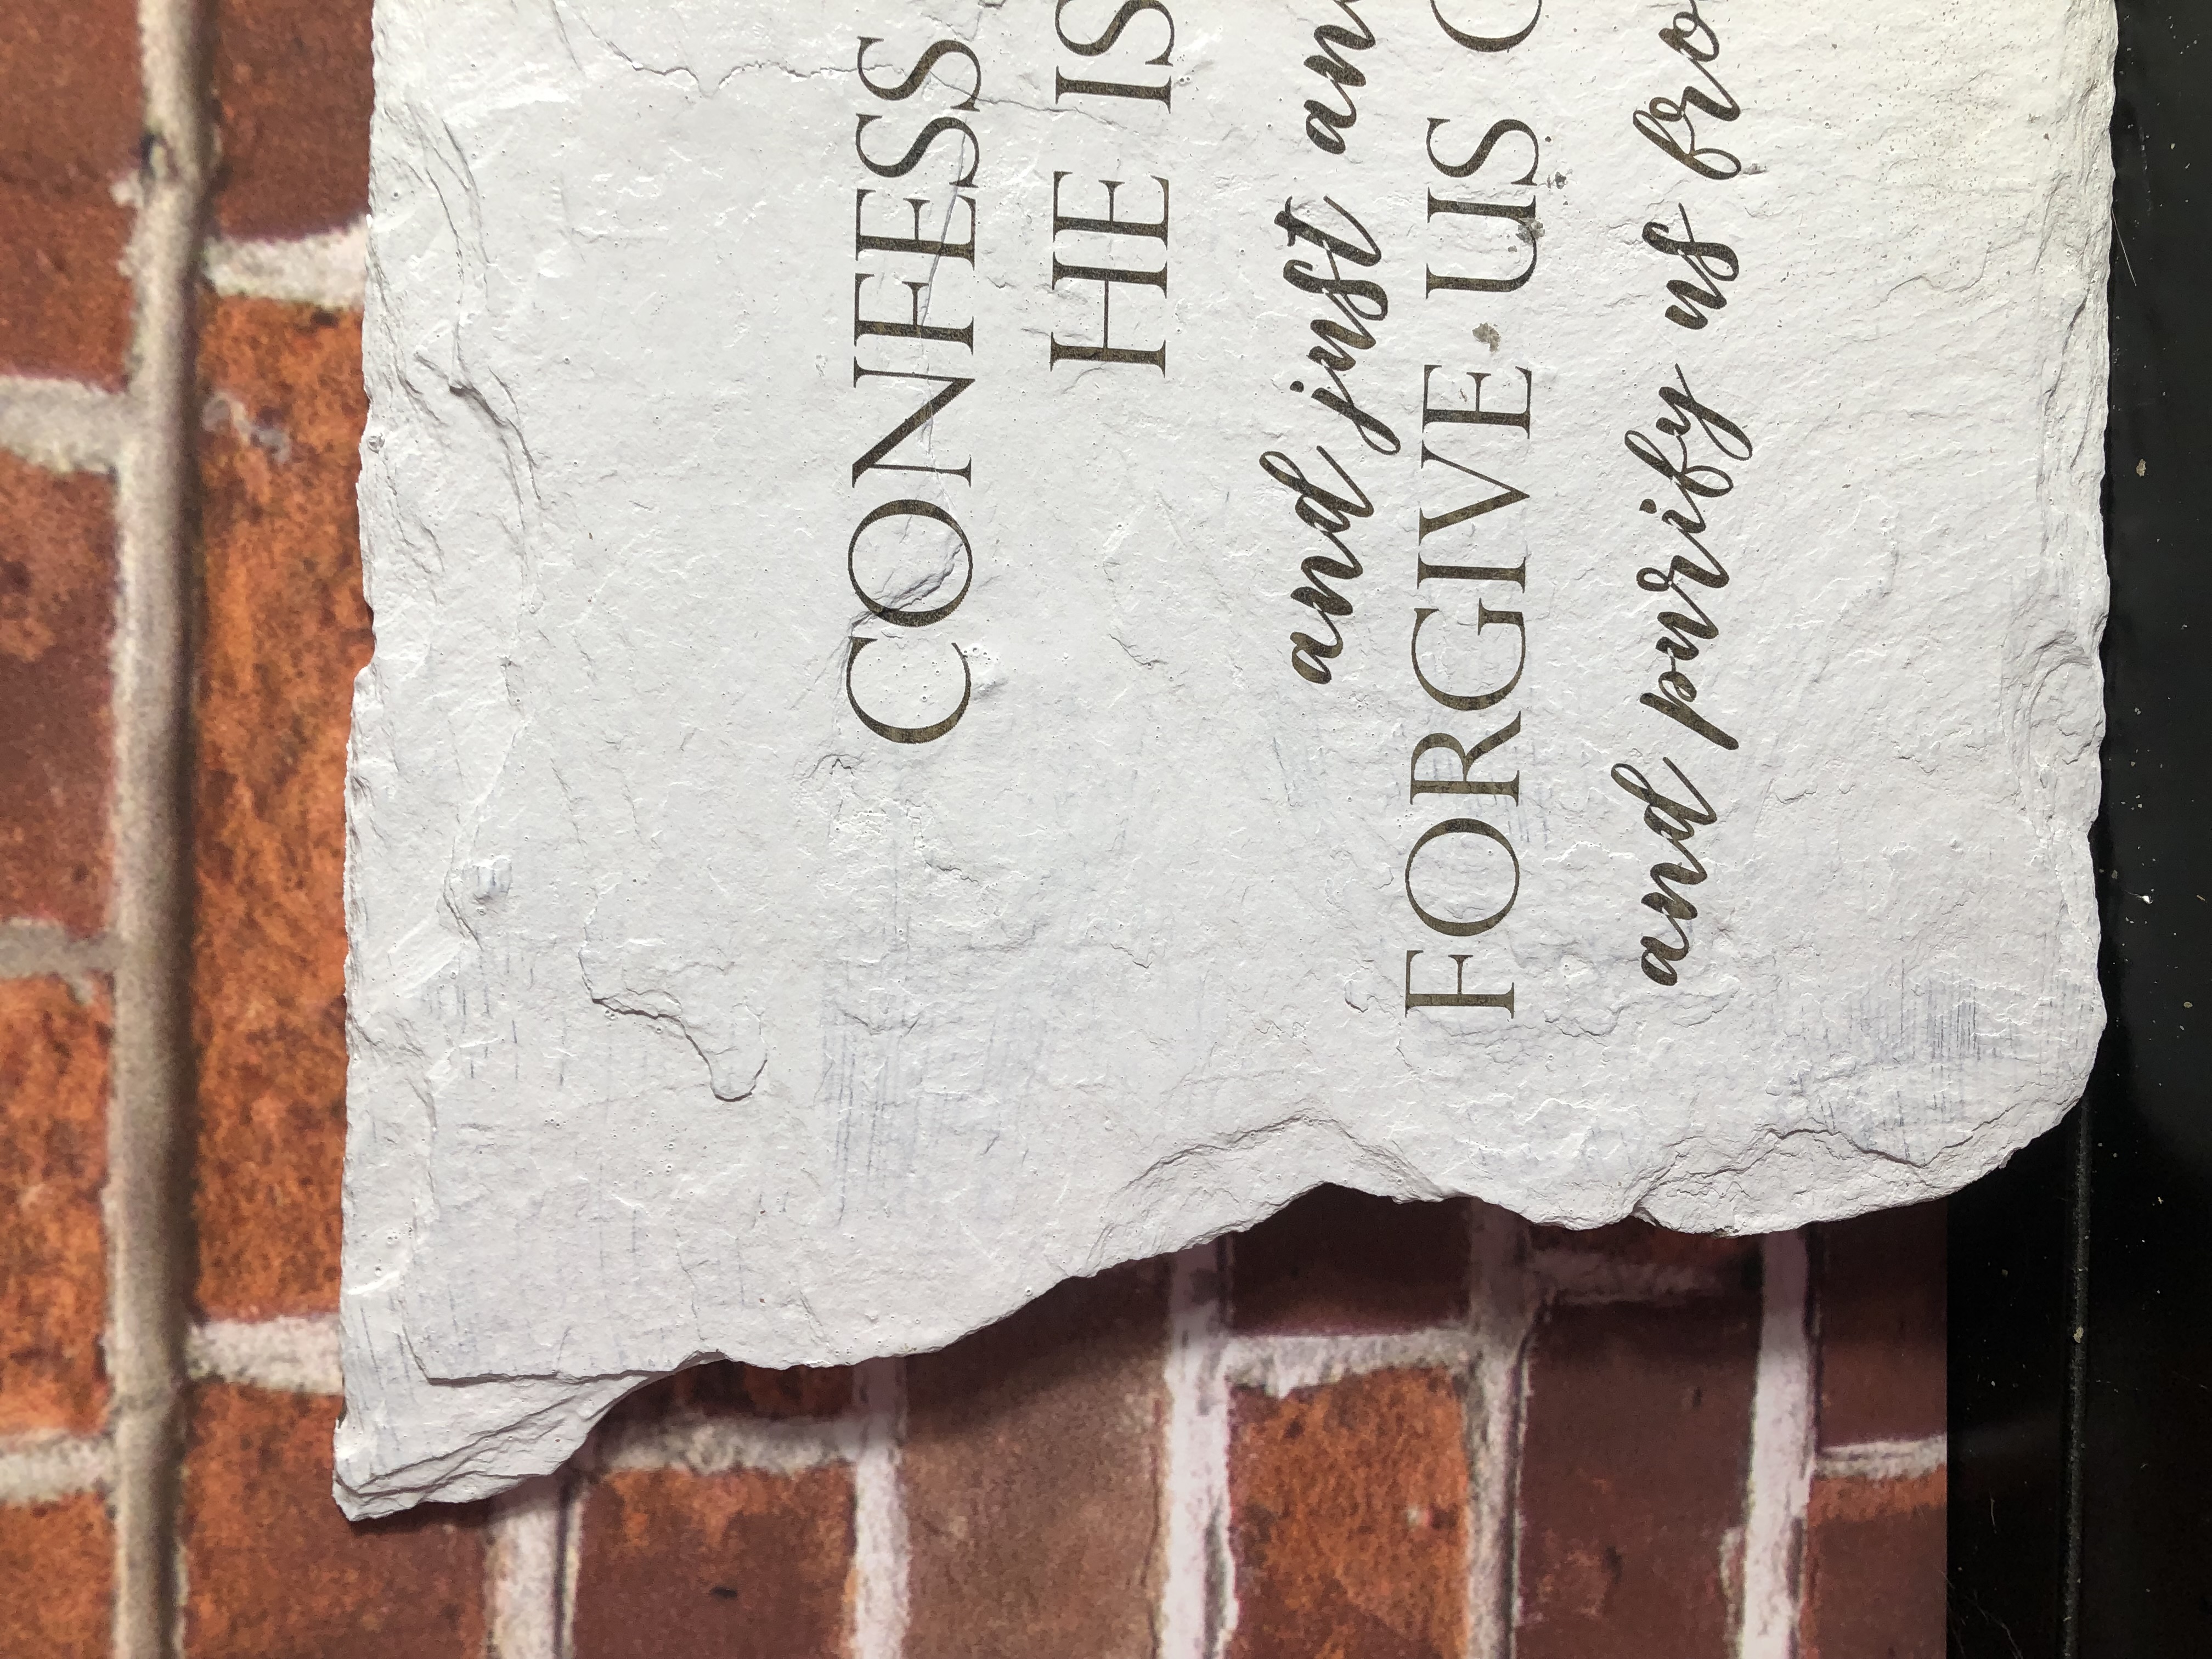 CONFESS
HE IS
and just and
FORGIVE US
and purify us